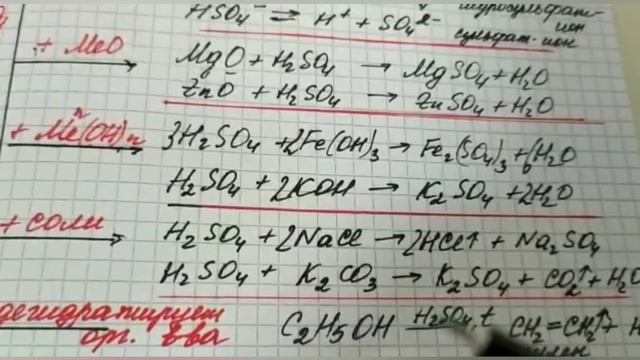 HSO₄⁻ ⇌ H⁺ + SO₄²⁻ гидросульфат-ион
сульфат-ион
+ MeO MgO + H₂SO₄ → MgSO₄ + H₂O
ZnO + H₂SO₄ → ZnSO₄ + H₂O
+ Me(OH)n 3H₂SO₄ + 2Fe(OH)₃ → Fe₂(SO₄)₃ + 6H₂O
H₂SO₄ + 2KOH → K₂SO₄ + 2H₂O
+ соли H₂SO₄ + 2NaCl → 2HCl↑ + Na₂SO₄
H₂SO₄ + K₂CO₃ → K₂SO₄ + CO₂↑ + H₂O
дегидратирует C₂H₅OH H₂SO₄, t CH₂=CH₂↑ + H
орг. в-ва